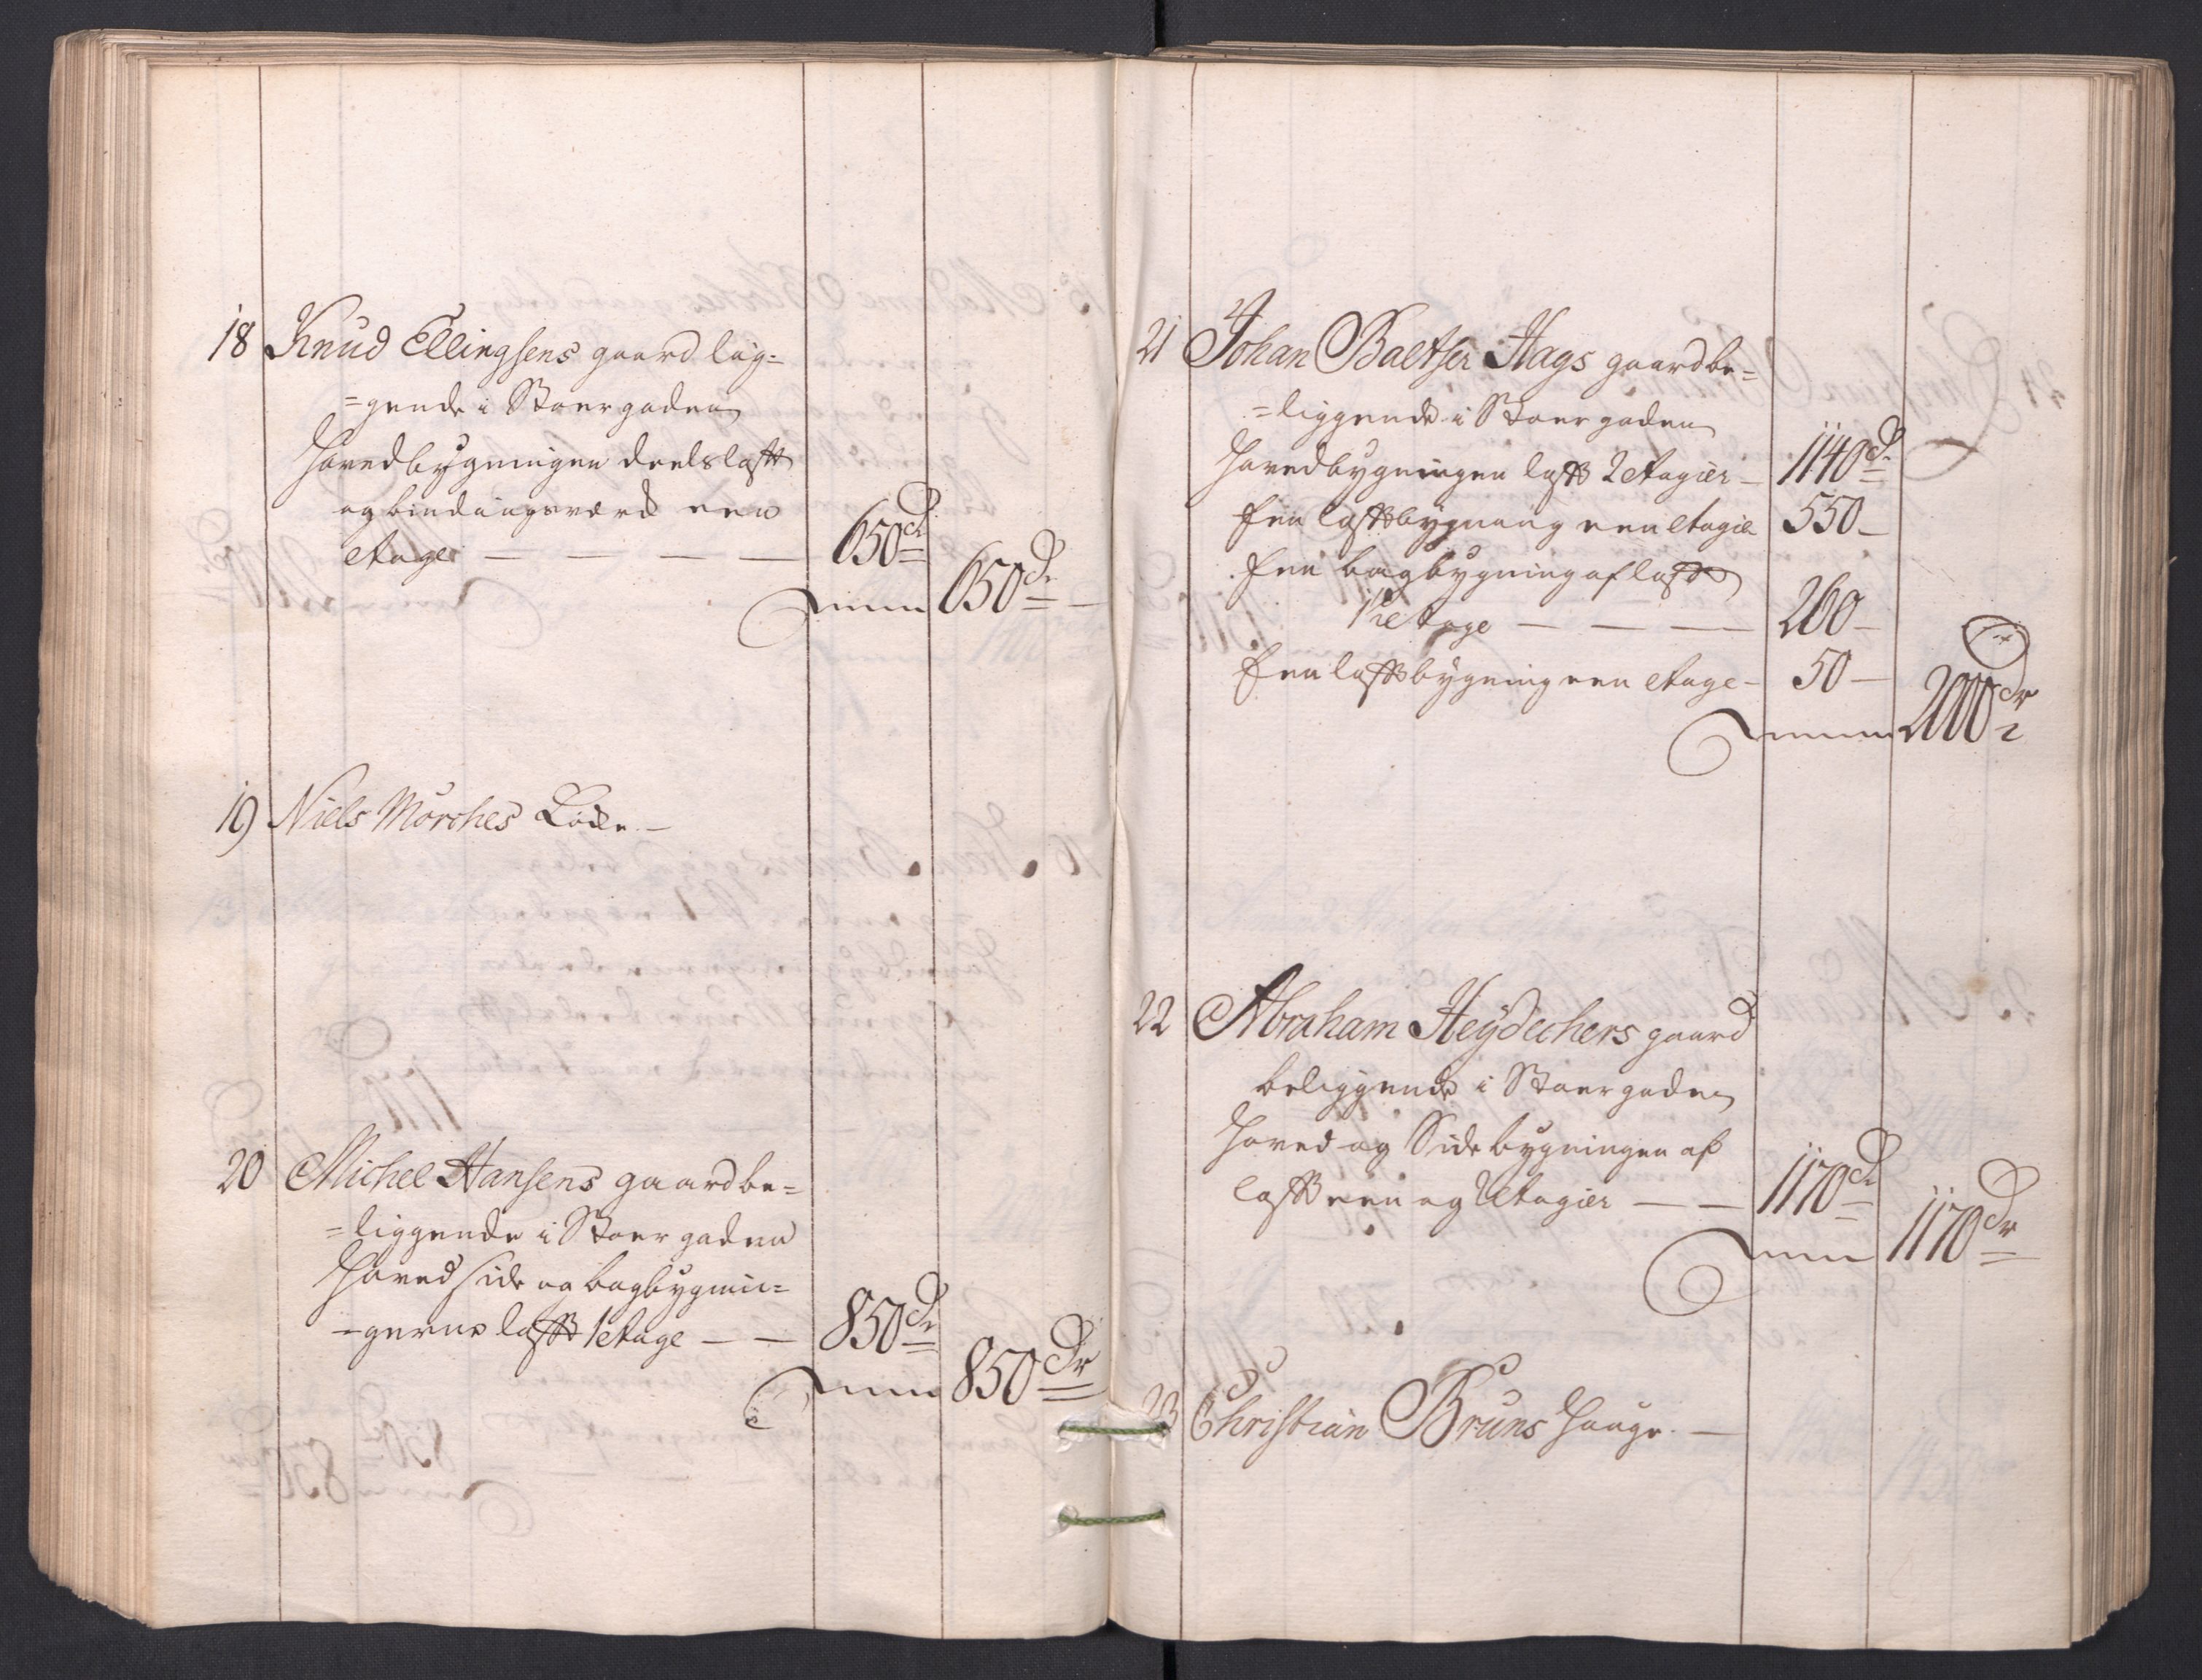 18 Knud Ellingsens gaard lig=
=gende i Stoergaden
Hovedbygningen deels laft
og bindingsværck een
etage — — — — 650 dr
Summa 650 dr
19 Niels Mörches Løde —
20 Michel Hansens gaard be=
=liggende i Stoergaden
Hoved side og bagbygnin=
=gerne laft 1 etage — — 850 dr
Summa 850 dr
21 Johan Baltser Hags gaard be=
=liggende i Stoergaden
Hovedbygningen laft 2 etagier — 1140 dr
Een laftbygning een etagie 550 —
Een bagbygning af laft
1 etage — — — 260 —
Een laftbygning een etage — 50 —
Summa 2000 dr
22 Abraham Heydechers gaard
beliggende i Stoergaden
Hoved og Sidebygningen af
laft een og 2 etagier — — 1170 dr
Summa 1170 dr
23 Christian Bruns Hauge —